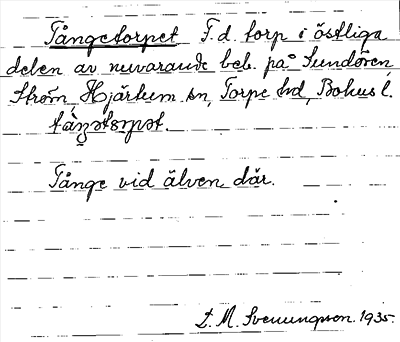 Tångetorpet F.d. torp i östliga
delen av nuvarande beb. på Sundören,
Ström, Hjärtum sn, Torpe hd, Bohus l.
Tånge vid älven där.
S. M. Svenungsson. 1935.